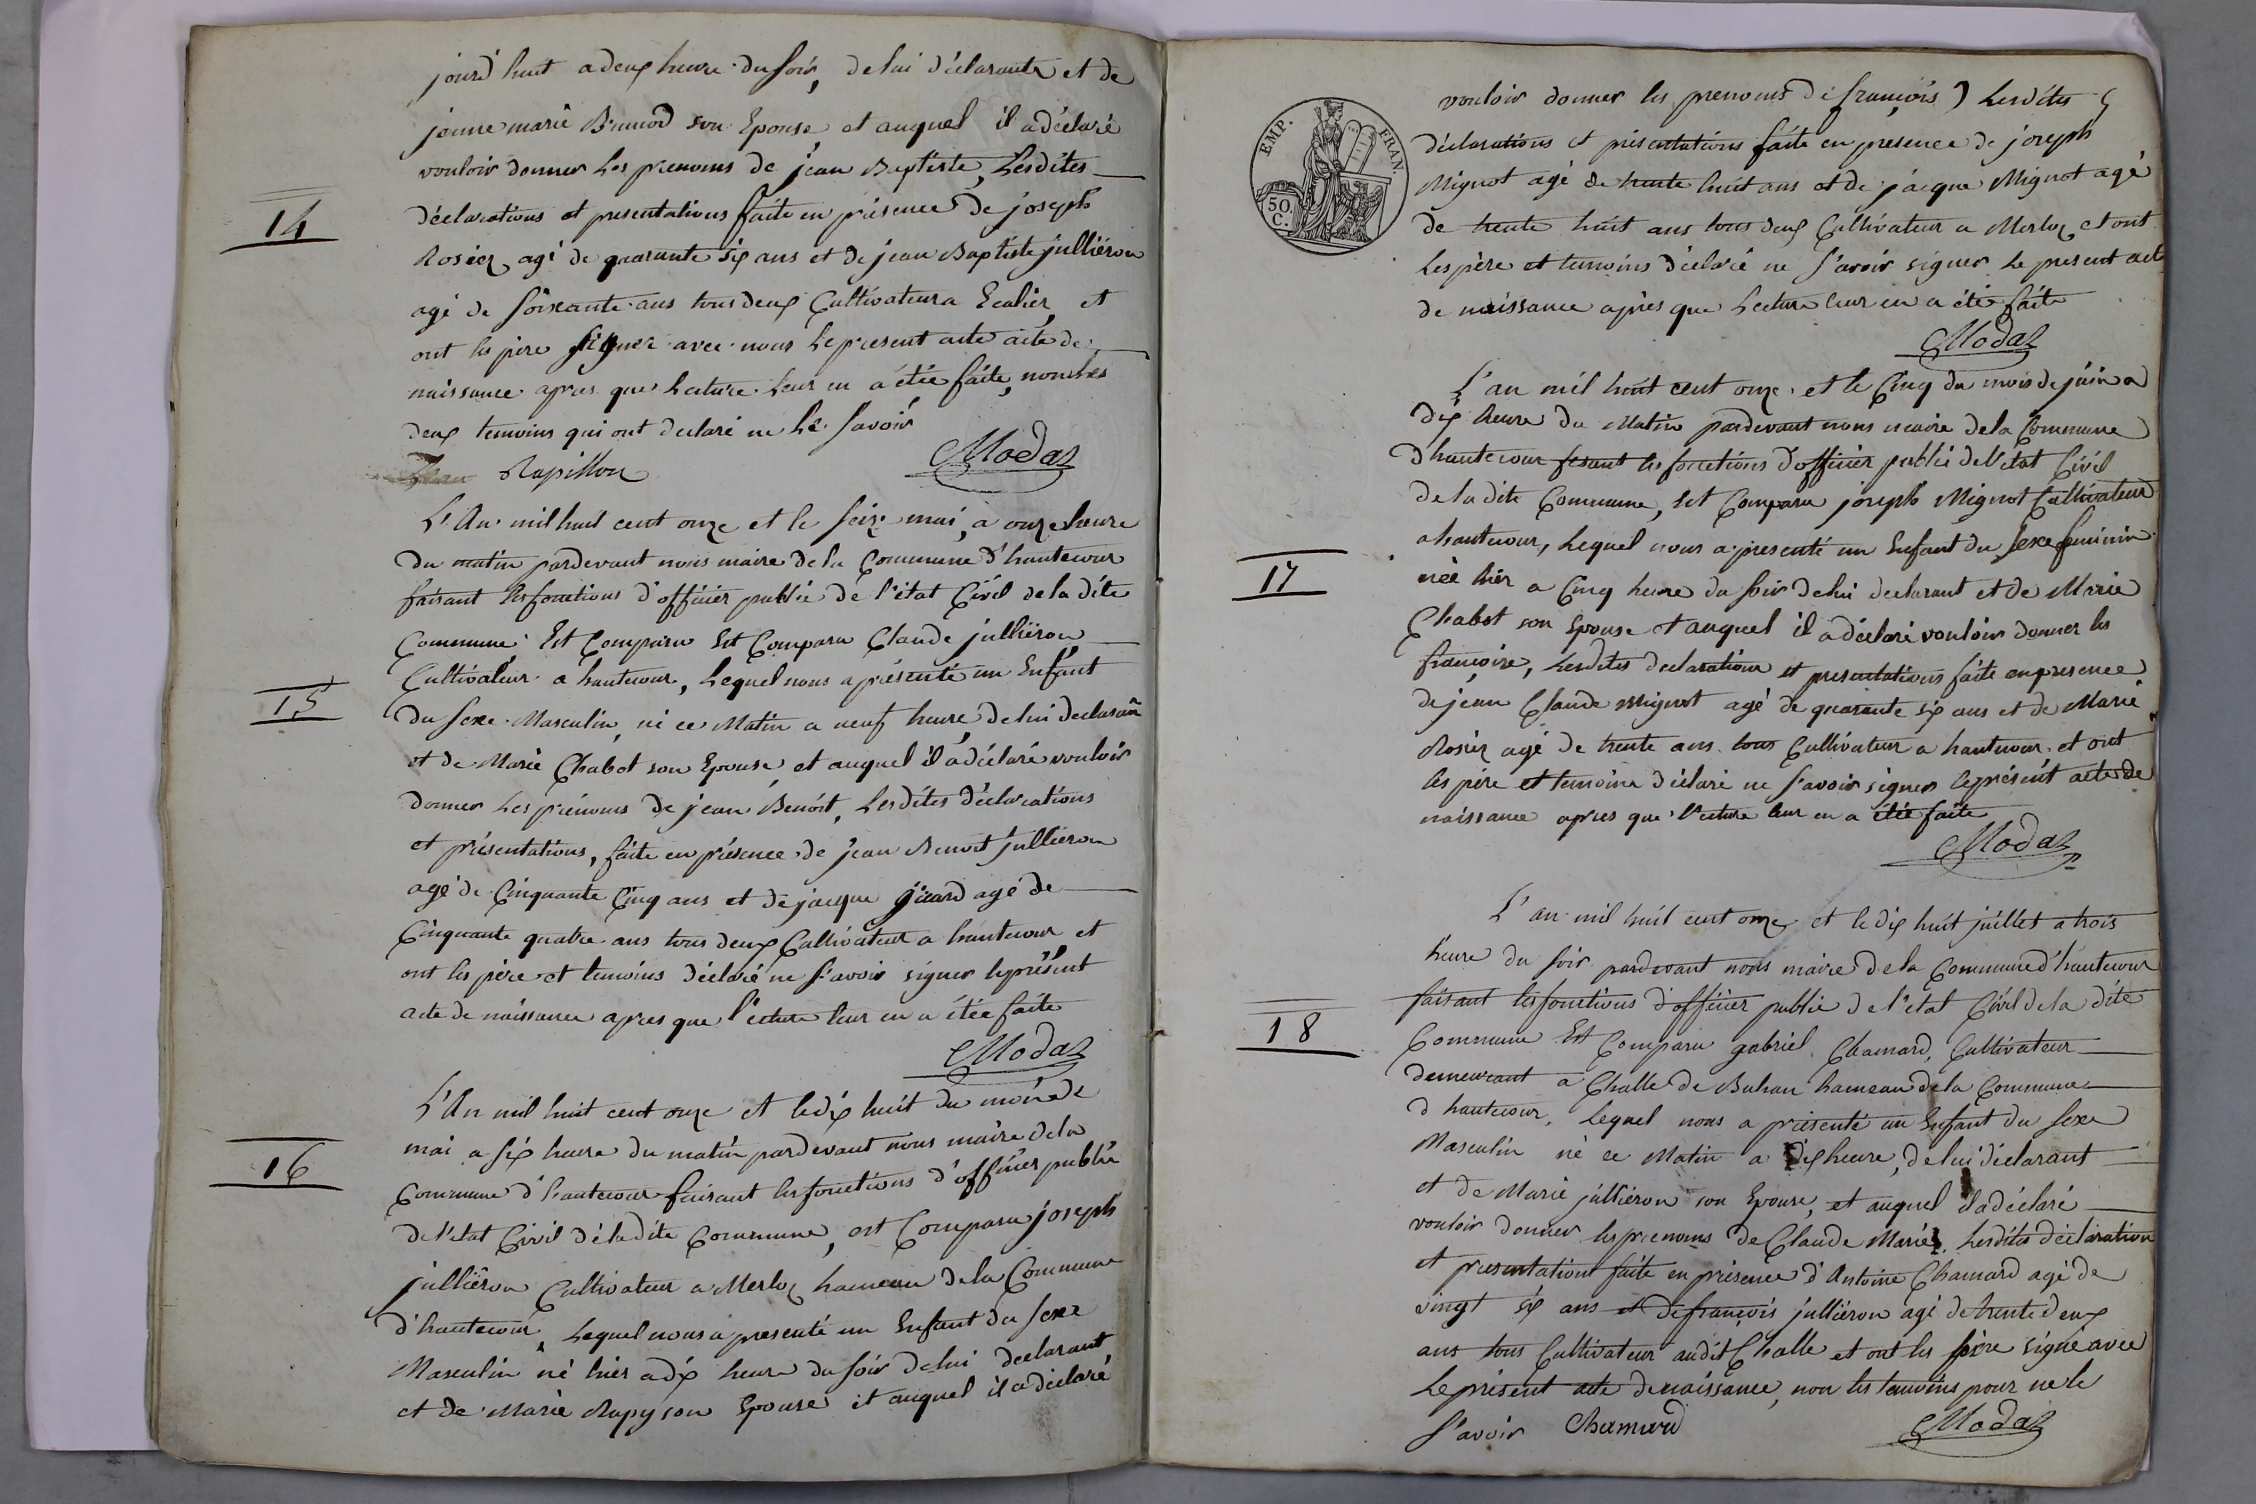 jourd'huit a deux heure du soir, de lui déclarante et de
jeanne marie Brunod son Epouse, et auquel il a déclaré
vouloir donner les prenoms de jean Baptiste, Lesdites
14
déclarations et presentations faite en présence de joseph
Rosier agé de quarante six ans et de jean Baptiste jullieron
agé de soixante ans tous deux Cultivateur a Ecalier, et
ont les père signer avec nous le present acte acte de
naissance apres que lecture leur en a étée faite, non les
deux temoins qui ont declaré ne le savoir
Rapillon Modas
L'An mil huit cent onze et le seize mai, a onze heure
du matin pardevant nous maire de la Commune d'hautecour
faisant les fonctions d'officier public de l'état Civil de la dite
Commune Est Comparu Est Comparu Claude jullieron
Cultivateur a hautecour, Lequel nous a présenté un Enfant
15
du sexe Masculin, né ce Matin a neuf heure, de lui declarant
et de Marie Chabot son Epouse, et auquel il a déclaré vouloir
donner Les prénoms de jean Benoit, Lesdites déclarations
et présentations, faite en présence de jean Benoit jullieron
agé de Cinquante Cinq ans et de jacque agé de
Cinquante quatre ans tous deux Cultivateur a hautecour et
ont les père et temoins déclaré ne s'avoir signer le présent
acte de naissance apres que l'ecture leur en a étée faite
Modas
L'An mil huit cent onze et le dix huit du mois de
mai a six heure du matin pardevant nous maire de la
16
Commune d'hautecour faisant les fonctions d'officier public
de l'etat Civil de la dite Commune, est Comparu joseph
jullieron Cultivateur a Merloz hameau de la Commune
d'hautecour, Lequel nous a presenté un Enfant du sexe
Masculin né hier a dix heure du soir de lui declarant
et de Marie Rapy son Epouse et auquel il a déclaré
EMP. FRAN.
50 C.
vouloir donner les prenoms de françois) Lesdites
déclarations et présentations faite en presence de joseph
Mignot agé de trente huit ans et de jacque Mignot agé
de trente huit ans tous deux Cultivateur a Merloz et ont
Les père et temoins déclaré ne s'avoir signer le present act
de naissance après que Lecture leur en a été faite
Modas
L'an mil huit cent onze et le Cinq du mois de juin a
dix heure du Matin pardevant nous maire de la Commune
d'hautecour fesant les fonctions d'officier public de l'etat Civil
de la dite Commune, Est Comparu joseph Mignot Cultivateur
a hautecour, Lequel nous a presenté un Enfant du sexe feminin
17
née hier a Cinq heure du soir de lui declarant et de Marie
Chabot son Epouse et auquel il a déclaré vouloir donner les
françoise, Lesdites declarations et presentations faite en presence
de jean Claude Mignot agé de quarante six ans et de Marie
Rosier agé de trente ans tous Cultivateur a hautecour et ont
les père et temoins déclaré ne s'avoir signer le présent acte de
naissance apres que l'ecture leur en a étée faite
Modas
L'an mil huit cent onze et le dix huit juillet a trois
heure du soir pardevant nous maire de la Commune d'hautecour
faisant les fonctions d'officier public de l'etat Civil de la dite
18
Commune Est Comparu gabriel Chamard, Cultivateur
demeurant a Challe de Bohan hameau de la Commune
d'hautecour, Lequel nous a présenté un Enfant du sexe
Masculin né ce Matin a dix heure, de lui déclarant
et de Marie jullieron son Epouse, et auquel il a déclaré
vouloir donner les prenoms de Claude Marie. Lesdites déclaration
et presentations faite en présence d'Antoine Chamard agé de
vingt six ans et de françois jullieron agé de trente deux
ans tous Cultivateur audit Challe et ont les père signé avec
Le présent acte de naissance, non les temoins pour ne le
s'avoir Chamard Modas